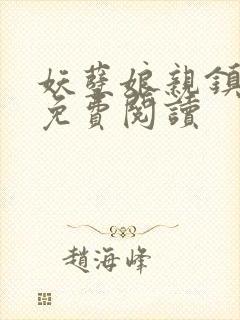 妖孽娘親鎮
免費閱讀
趙海峰